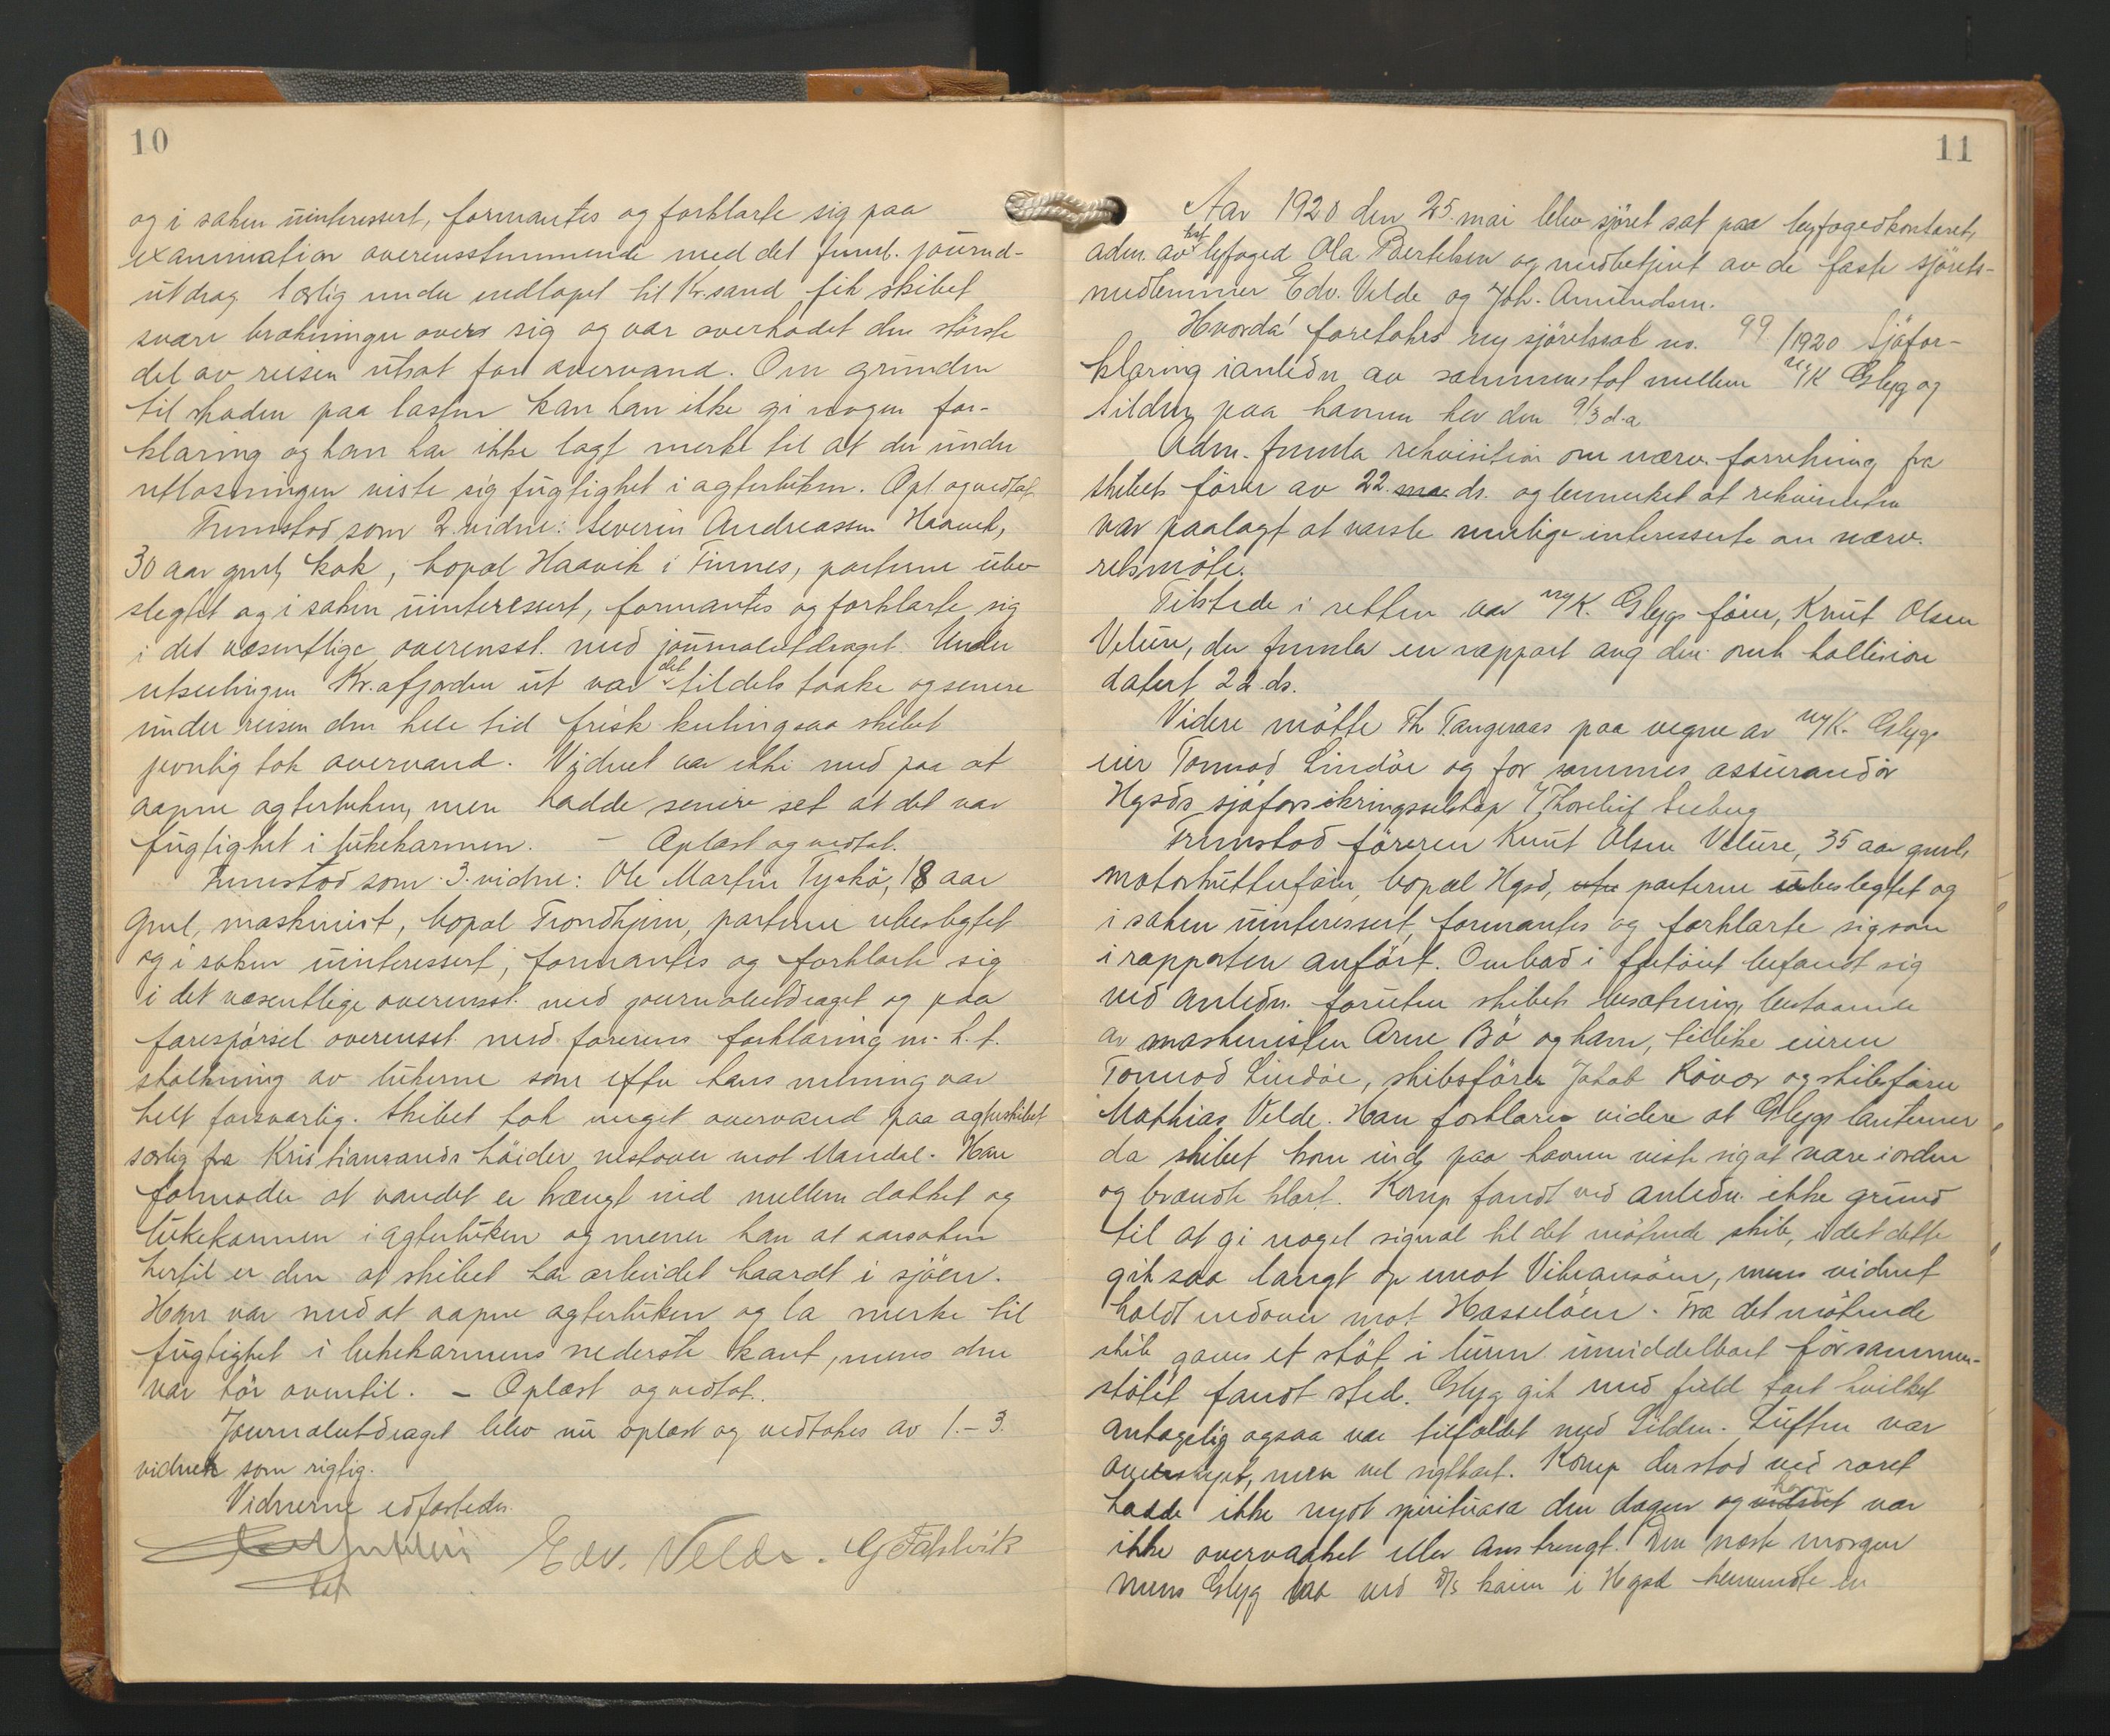 10
og i saken uinteressert, formantes og forklarte sig paa
examination overensstemmende med det freml. journal-
utdrag. Særlig under indløpet til Kr.sand fik skibet
svære brækninger over sig og var overhodet den største
del av reisen utsat for overvand. Om grunden
til skaden paa lasten kan han ikke gi nogen for-
klaring og han har ikke lagt merke til at der under
utlosningen viste sig fugtighet i agterluken. Opl. og vedtat.
Fremstod som 2. vidne: Severin Andreassen Haavik,
30 aar gml, kok, bopæl Haavik i Finnes, parterne ube-
slegtet og i saken uinteressert, formantes og forklarte sig
i det væsentlige overensst. med journalutdraget. Under
utseilingen Kr.afjorden ut var det tildels taake og senere
under reisen den hele tid frisk kuling saa skibet
jevnlig tok overvand. Vidnet var ikke med paa at
aapne agterluken, men hadde senere set at det var
fugtighet i lukekarmen. - Oplæst og vedtat.
Fremstod som 3. vidne: Ole Martin Tyskø, 18 aar
gml, maskinist, bopæl Trondhjem, parterne ubeslegtet
og i saken uinteressert, formantes og forklarte sig
i det væsentlige overensst. med journalutdraget og paa
forespørsel overensst. med førerens forklaring m.h.t.
skalkning av lukerne som efter hans mening var
helt forsvarlig. Skibet tok meget overvand paa agterskibet
særlig fra Kristiansands høider vestover mot Mandal. Han
formoder at vandet er trængt ind mellem dækket og
lukekarmen i agterluken og mener han at aarsaken
hertil er den at skibet har arbeidet haardt i sjøen.
Han var med at aapne agterluken og la merke til
fugtighet i lukekarmens nederste kant, mens den
var tør oventil. - Oplæst og vedtat.
Journalutdraget blev nu oplæst og vedtokes av 1.-3.
vidner som rigtig.
Vidnerne edfæstedes.
Edv. Velde. G Fahlvik
11
Aar 1920 den 25. mai blev sjøret sat paa byfogedkontoret,
adm. av byfoged Ola Bertelsen og medbetjent av de faste sjørets-
medlemmer Edv. Velde og Joh. Amundsen.
Hvorda! foretokes ny sjøretssak no. 99/1920 Sjøfor-
klaring i anledn av sammenstøt mellem M/K Glyg og
Silden paa havnen her den 9/3 d.a.
Adm. fremla rekvisition om nærv. forretning fra
skibets fører av 22. ds. og bemerket at rekvirenten
var paalagt at varsle mulige interesserte om nærv.
retsmøte.
Tilstede i retten var M/K. Glygs fører, Knut Olsen
Veture, der fremla en rapport ang den omh kollision
datert 22. ds.
Videre møtte Th. Tangeraas paa vegne av M/K. Glygs
eier Tormod Lindøe og for sammes assurandør
Hgsds sjøforsikringsselskap v/ Thorleif Seeberg
Fremstod føreren Knut Olsen Veture, 35 aar gml,
motorkutterfører, bopæl Hgsd, parterne ubeslegtet og
i saken uinteressert, formantes og forklarte sig som
i rapporten anført. Ombord i fartøiet befandt sig
ved anledn. foruten skibets besætning, bestaaende
av maskinisten Arne Bø og ham, tillike eieren
Tormod Lindøe, skibsfører Jakob Røvær og skibsfører
Mathias Velde. Han forklarer videre at Glygs lanterner
da skibet kom ind paa havnen viste sig at være i orden
og brændte klart. Komp. fandt ved anledn. ikke grund
til at gi noget signal til det møtende skib, idet dette
gik saa langt op imot Vibransøen, mens vidnet
holdt nedover mot Hasseløen. Fra det møtende
skib gaves et støt i luren umiddelbart før sammen-
støtet fandt sted. Glyg gik med fuld fart hvilket
antagelig ogsaa var tilfældet med Silden. Luften var
overskyet, men vel sigtbart. Komp. der stod ved roret
hadde ikke nydt spirituosa den dagen og han var
ikke overvaaket eller anstrengt. Den næste morgen
mens Glyg laa ved D/S kaien i Hgsd henvendte en